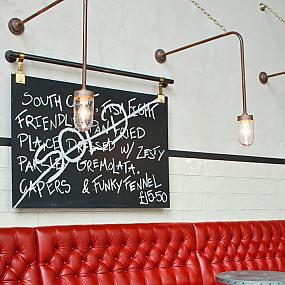 SOUTH COAST, FISH FIGHT
FRIENDLY, PAN FRIED
PLAICE DRESSED W/ ZESTY
PARSLEY GREMOLATA,
CAPERS & FUNKY FENNEL
£15.50
SOLD